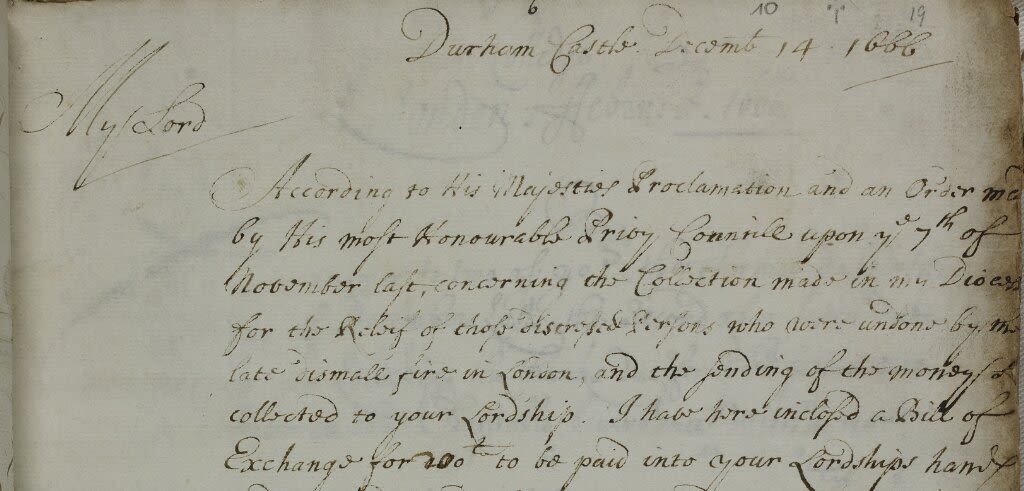 6 10 "1" 19
Durham Castle Decemb^r 14. 1666
My Lord
According to His Majesties Proclamation and an Order
by His most Honourable Privy Councill upon y^e 7^th of
November last, concerning the Collection made in my
for the Releif of those distressed Persons who were undone by
late dismall fire in London, and the sending of the moneys
collected to your Lordship. I have here inclosed a Bill of
Exchange for 200^li to be paid into your Lordships hands